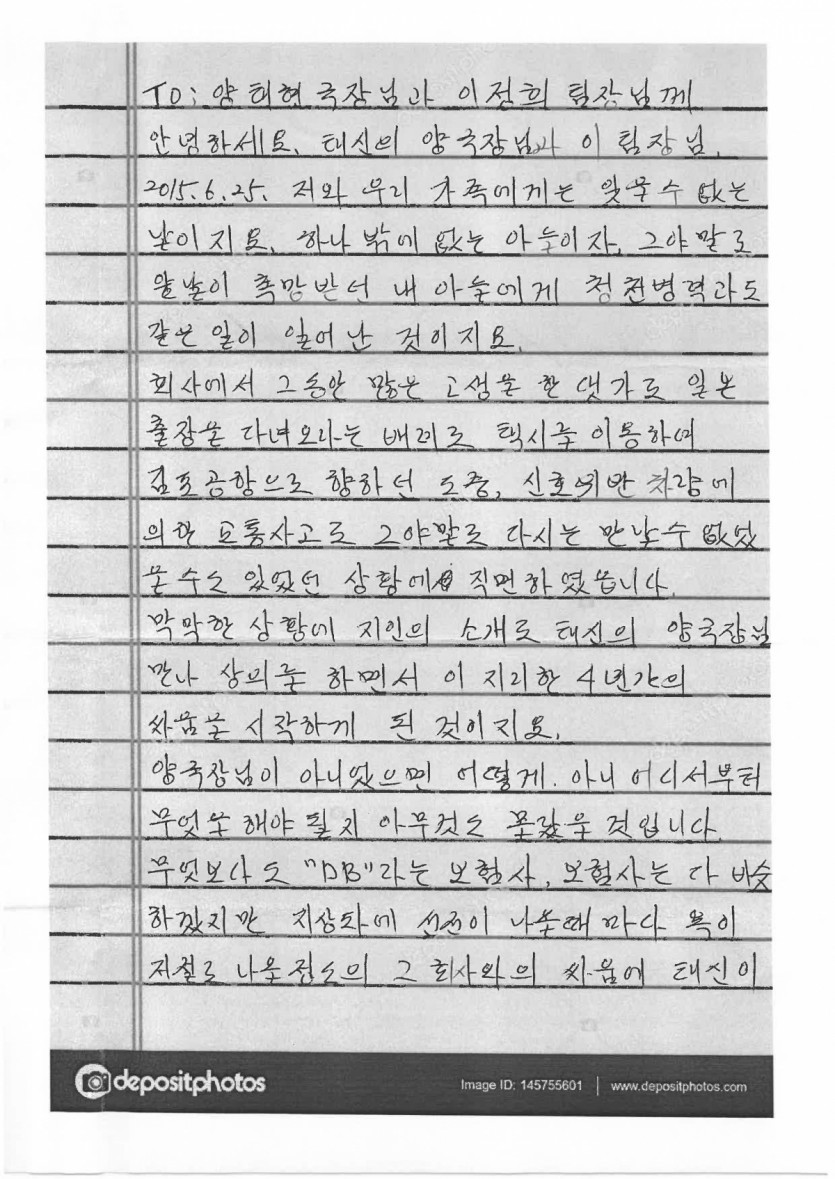 TO: 양희현 국장님과 이정희 팀장님께
안녕하세요. 태신의 양국장님과 이 팀장님.
2015.6.25. 저와 우리 가족에게는 잊을수 없는
날이지요. 하나 밖에 없는 아들이자, 그야말로
앞날이 촉망받던 내 아들에게 청천병력과도
같은 일이 일어난 것이지요.
회사에서 그동안 많은 고생을 한 댓가로 일본
출장을 다녀오라는 배려로 택시를 이용하여
김포공항으로 향하던 도중, 신호위반 차량에
의한 교통사고로 그야말로 다시는 만날수 없었
을수도 있었던 상황에 직면하였읍니다.
막막한 상황에 지인의 소개로 태신의 양국장님
만나 상의를 하면서 이 지리한 4년간의
싸움을 시작하게 된 것이지요.
양국장님이 아니었으면 어떻게. 아니 어디서부터
무엇을 해야 될지 아무것도 몰랐을 것입니다.
무엇보다도 "DB"라는 보험사, 보험사는 다 비슷
하겠지만 지상파에 선전이 나올때 마다 욕이
저절로 나올정도의 그 회사와의 싸움에 태신이
depositphotos
Image ID: 145755601 | www.depositphotos.com